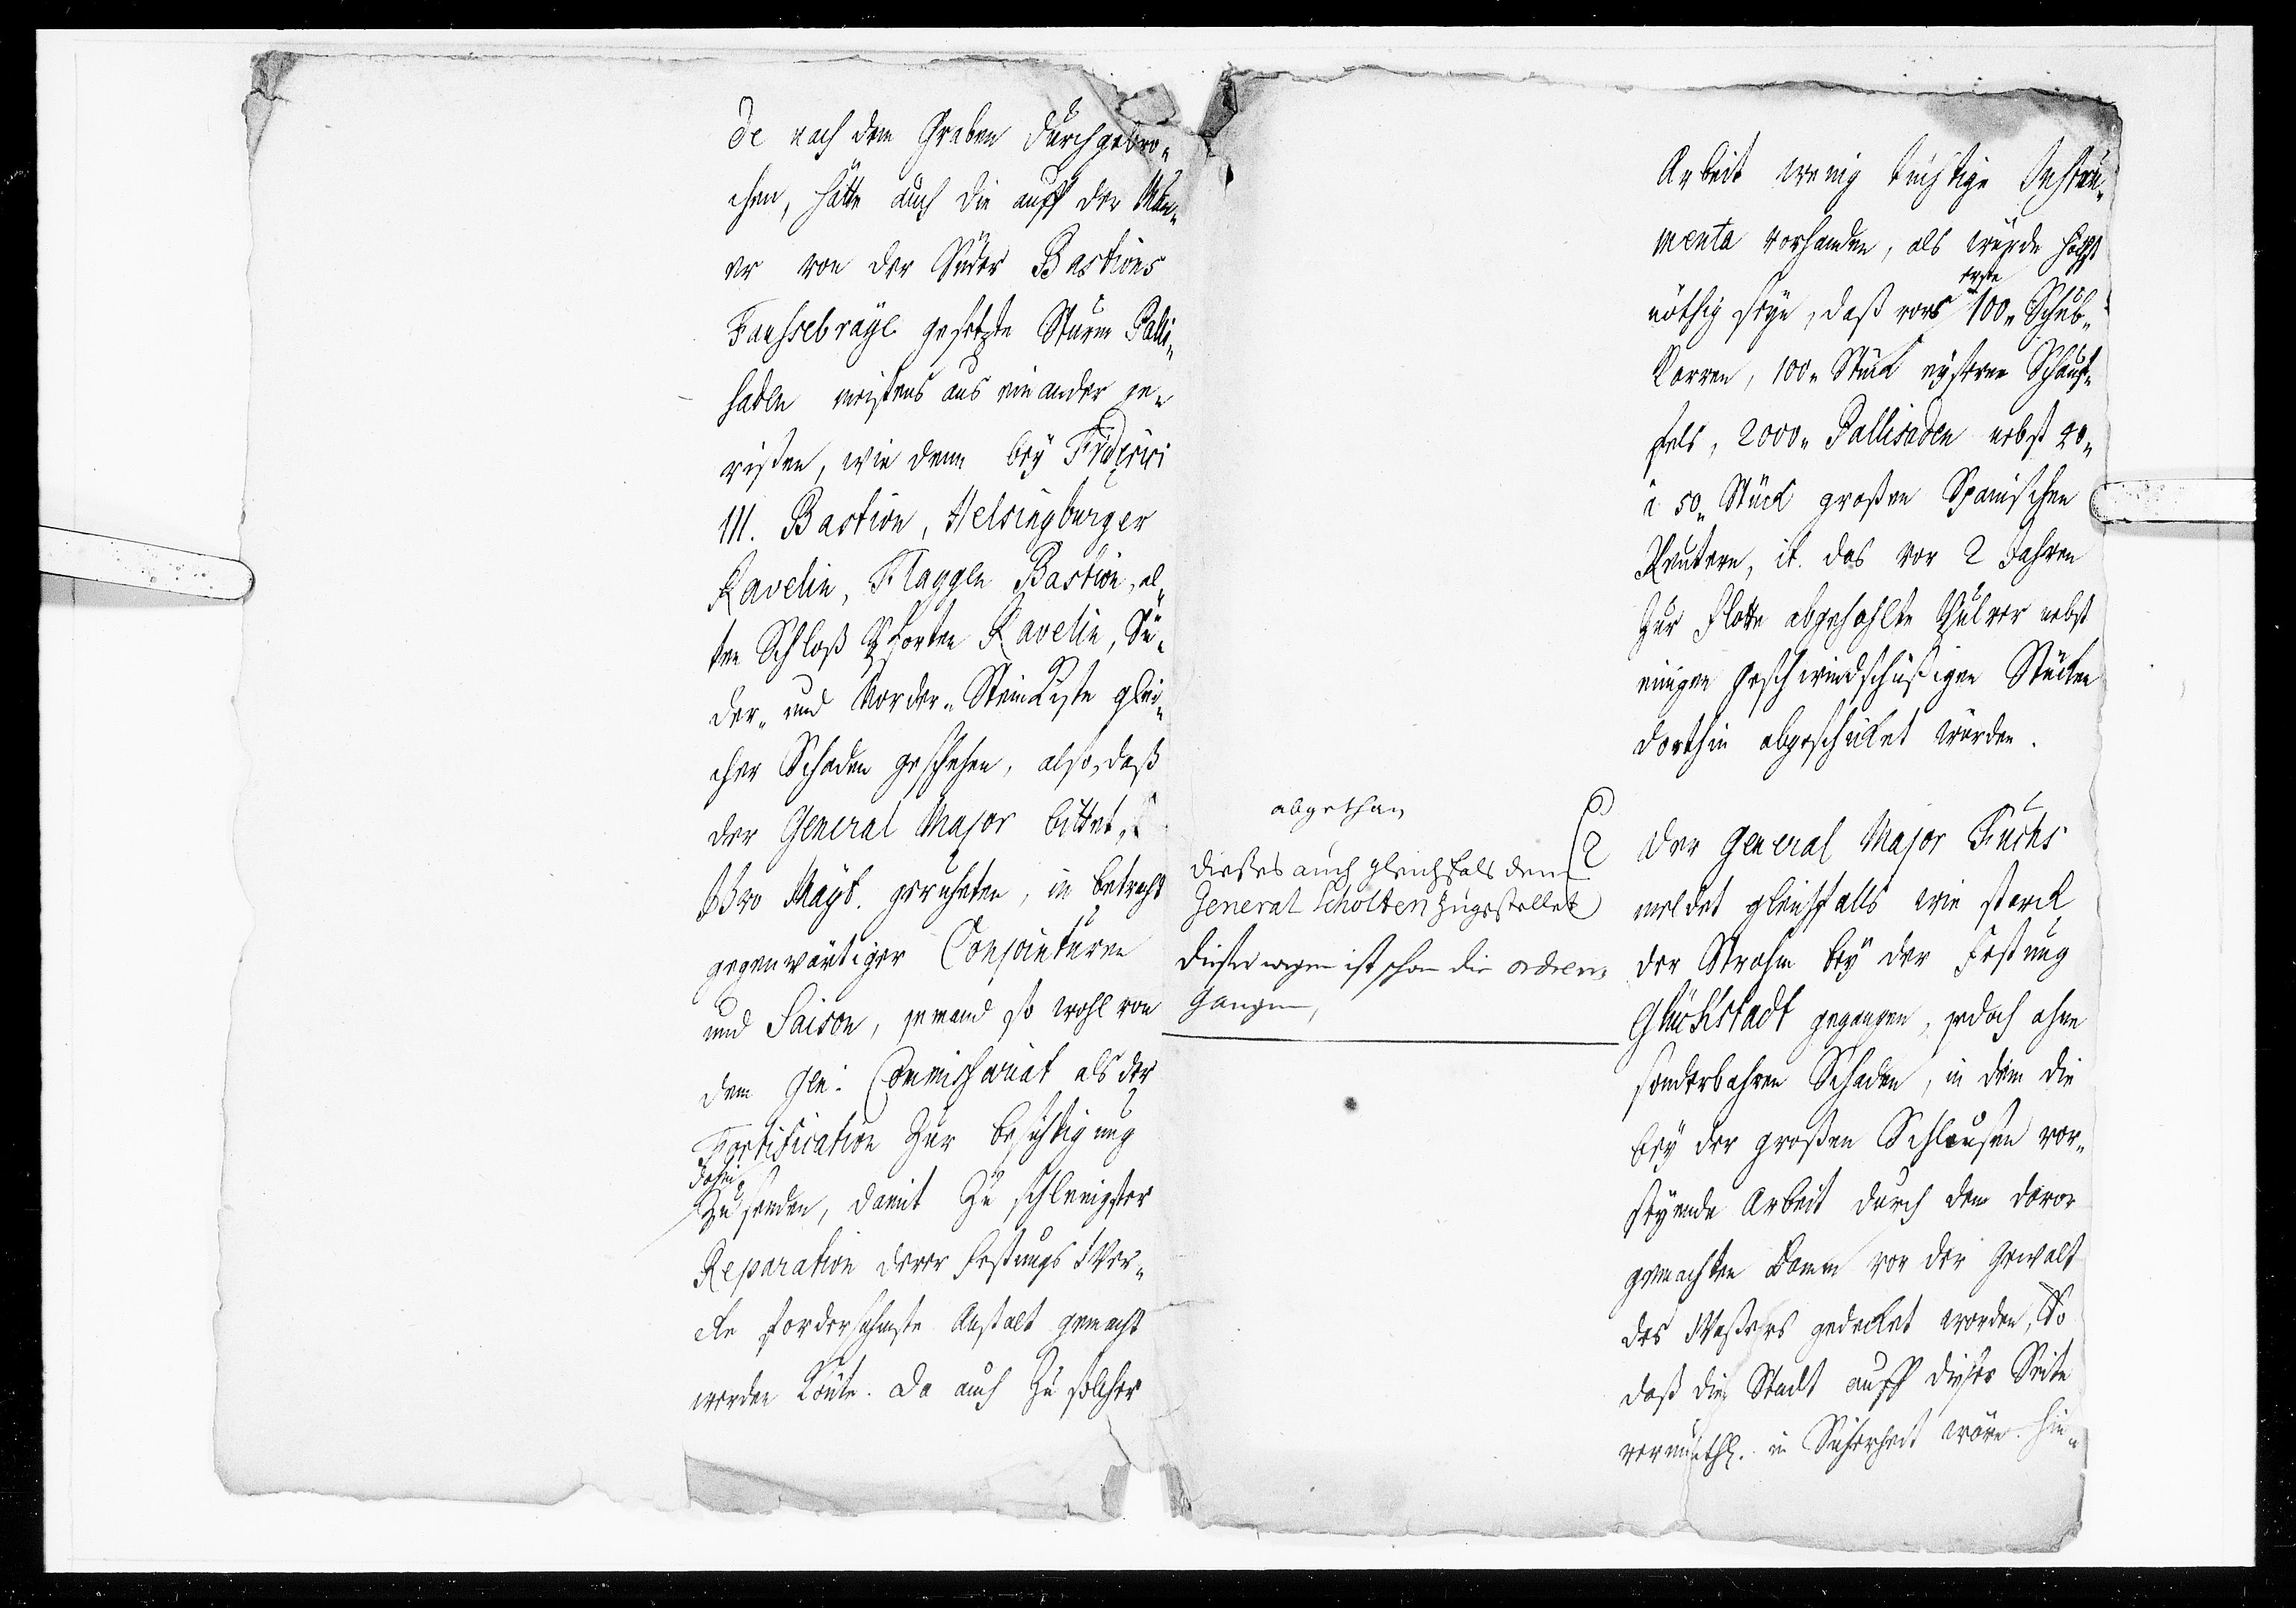 de nach dem Graben durchgebro-
chen, hätte auch die auff der Mau-
er von der Süder Bastions
Faussebraye gesetzte Sturm Palli-
saden meistens aus einander ge-
rißen, wie denn bey Friderici
III. Bastion, Helsingburger
Ravelin, Flaggen Bastion, al-
ten Schloß Pforten Ravelin, Sü-
der- und Norder-Steinkiste glei-
cher Schaden geschehen, also, daß
der General Major bittet,
Ihro Mayt. geruheten, in betracht
gegenwärtiger Conjoncturen
und Saison, jemand so wohl von
dem Gen: Commissariat als der
Fortification zur besichtigung
dahin
zu senden, damit zu schleunigster
Reparation derer Festungs Wer-
cke fordersahmste Anstalt gemacht
werden könte. Da auch zu solcher
Arbeit wenig tüchtige Instru-
menta vorhanden, als würde höchst
nöthig seyn, daß vors erste 100. Schub-
Karren, 100. Stück eyserne Schauf-
fels, 2000. Pallisaden nebst 40.
à 50. Stück großen Spanischen
Reutern, it. das vor 2 Jahren
zur Flotte abgehohlte Pulver nebst
einigen geschwindschüßigen Stücken
dorthin abgeschicket würden.
abgethan
dießes auch gleichfals dem
General Scholten zugestellet
dießerwegen ist schon die ordre
gangen,
2
Der General Major Fuchs
meldet gleichfalls wie starck
der Strohm bey der Festung
Glückstadt gegangen, jedoch ohne
sonderbahren Schaden, in dem die
bey der großen Schleusen vor-
seyende Arbeit durch dem davor
gemachten Damm vor der Gewalt
des Waßers gedecket worden, So
daß die Stadt auff dieser Seite
vermuthl. in Sicherheit wäre. Hin-